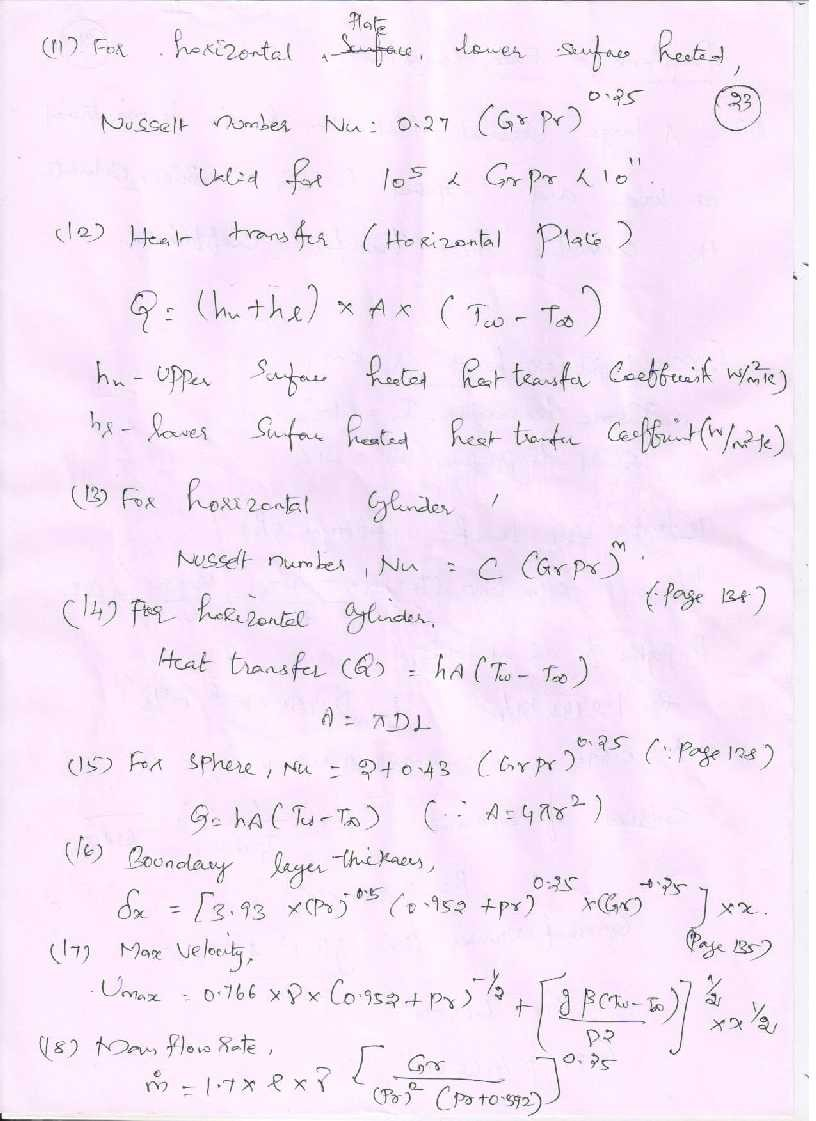 Plate
(11) For horizontal, Surface, lower surface heated,
23
Nusselt number Nu = 0.27 (Gr Pr)^0.25
Valid for 10^5 < Gr Pr < 10^11.
(12) Heat transfer (Horizontal Plate)
Q = (hu + hl) × A × (Tw - T∞)
hu - upper Surface heated heat transfer Coefficient W/m²K)
hl - lower Surface heated heat transfer Coefficient (W/m²K)
(13) For horizontal Cylinder,
Nusselt number, Nu = C (Gr Pr)^m.
(14) For horizontal Cylinder.
Heat transfer (Q) = hA (Tw - T∞)
A = πDL
(15) For sphere, Nu = 2 + 0.43 (Gr Pr)^0.25
Q = hA (Tw - T∞) (∵ A = 4πr²)
(16) Boundary layer thickness,
δx = [3.93 × (Pr)^-0.5 (0.952 + Pr)^0.25 × (Gr)^-0.25] × x.
(Page 135)
(17) Max Velocity,
Umax = 0.766 × γ × (0.952 + Pr)^-1/2 + [g β (Tw - T∞) / γ2]^1/2 × x^1/2
(18) Mass flow Rate,
ṁ = 1.7 × ρ × γ [Gr / (Pr)² (Pr + 0.592)]^0.25